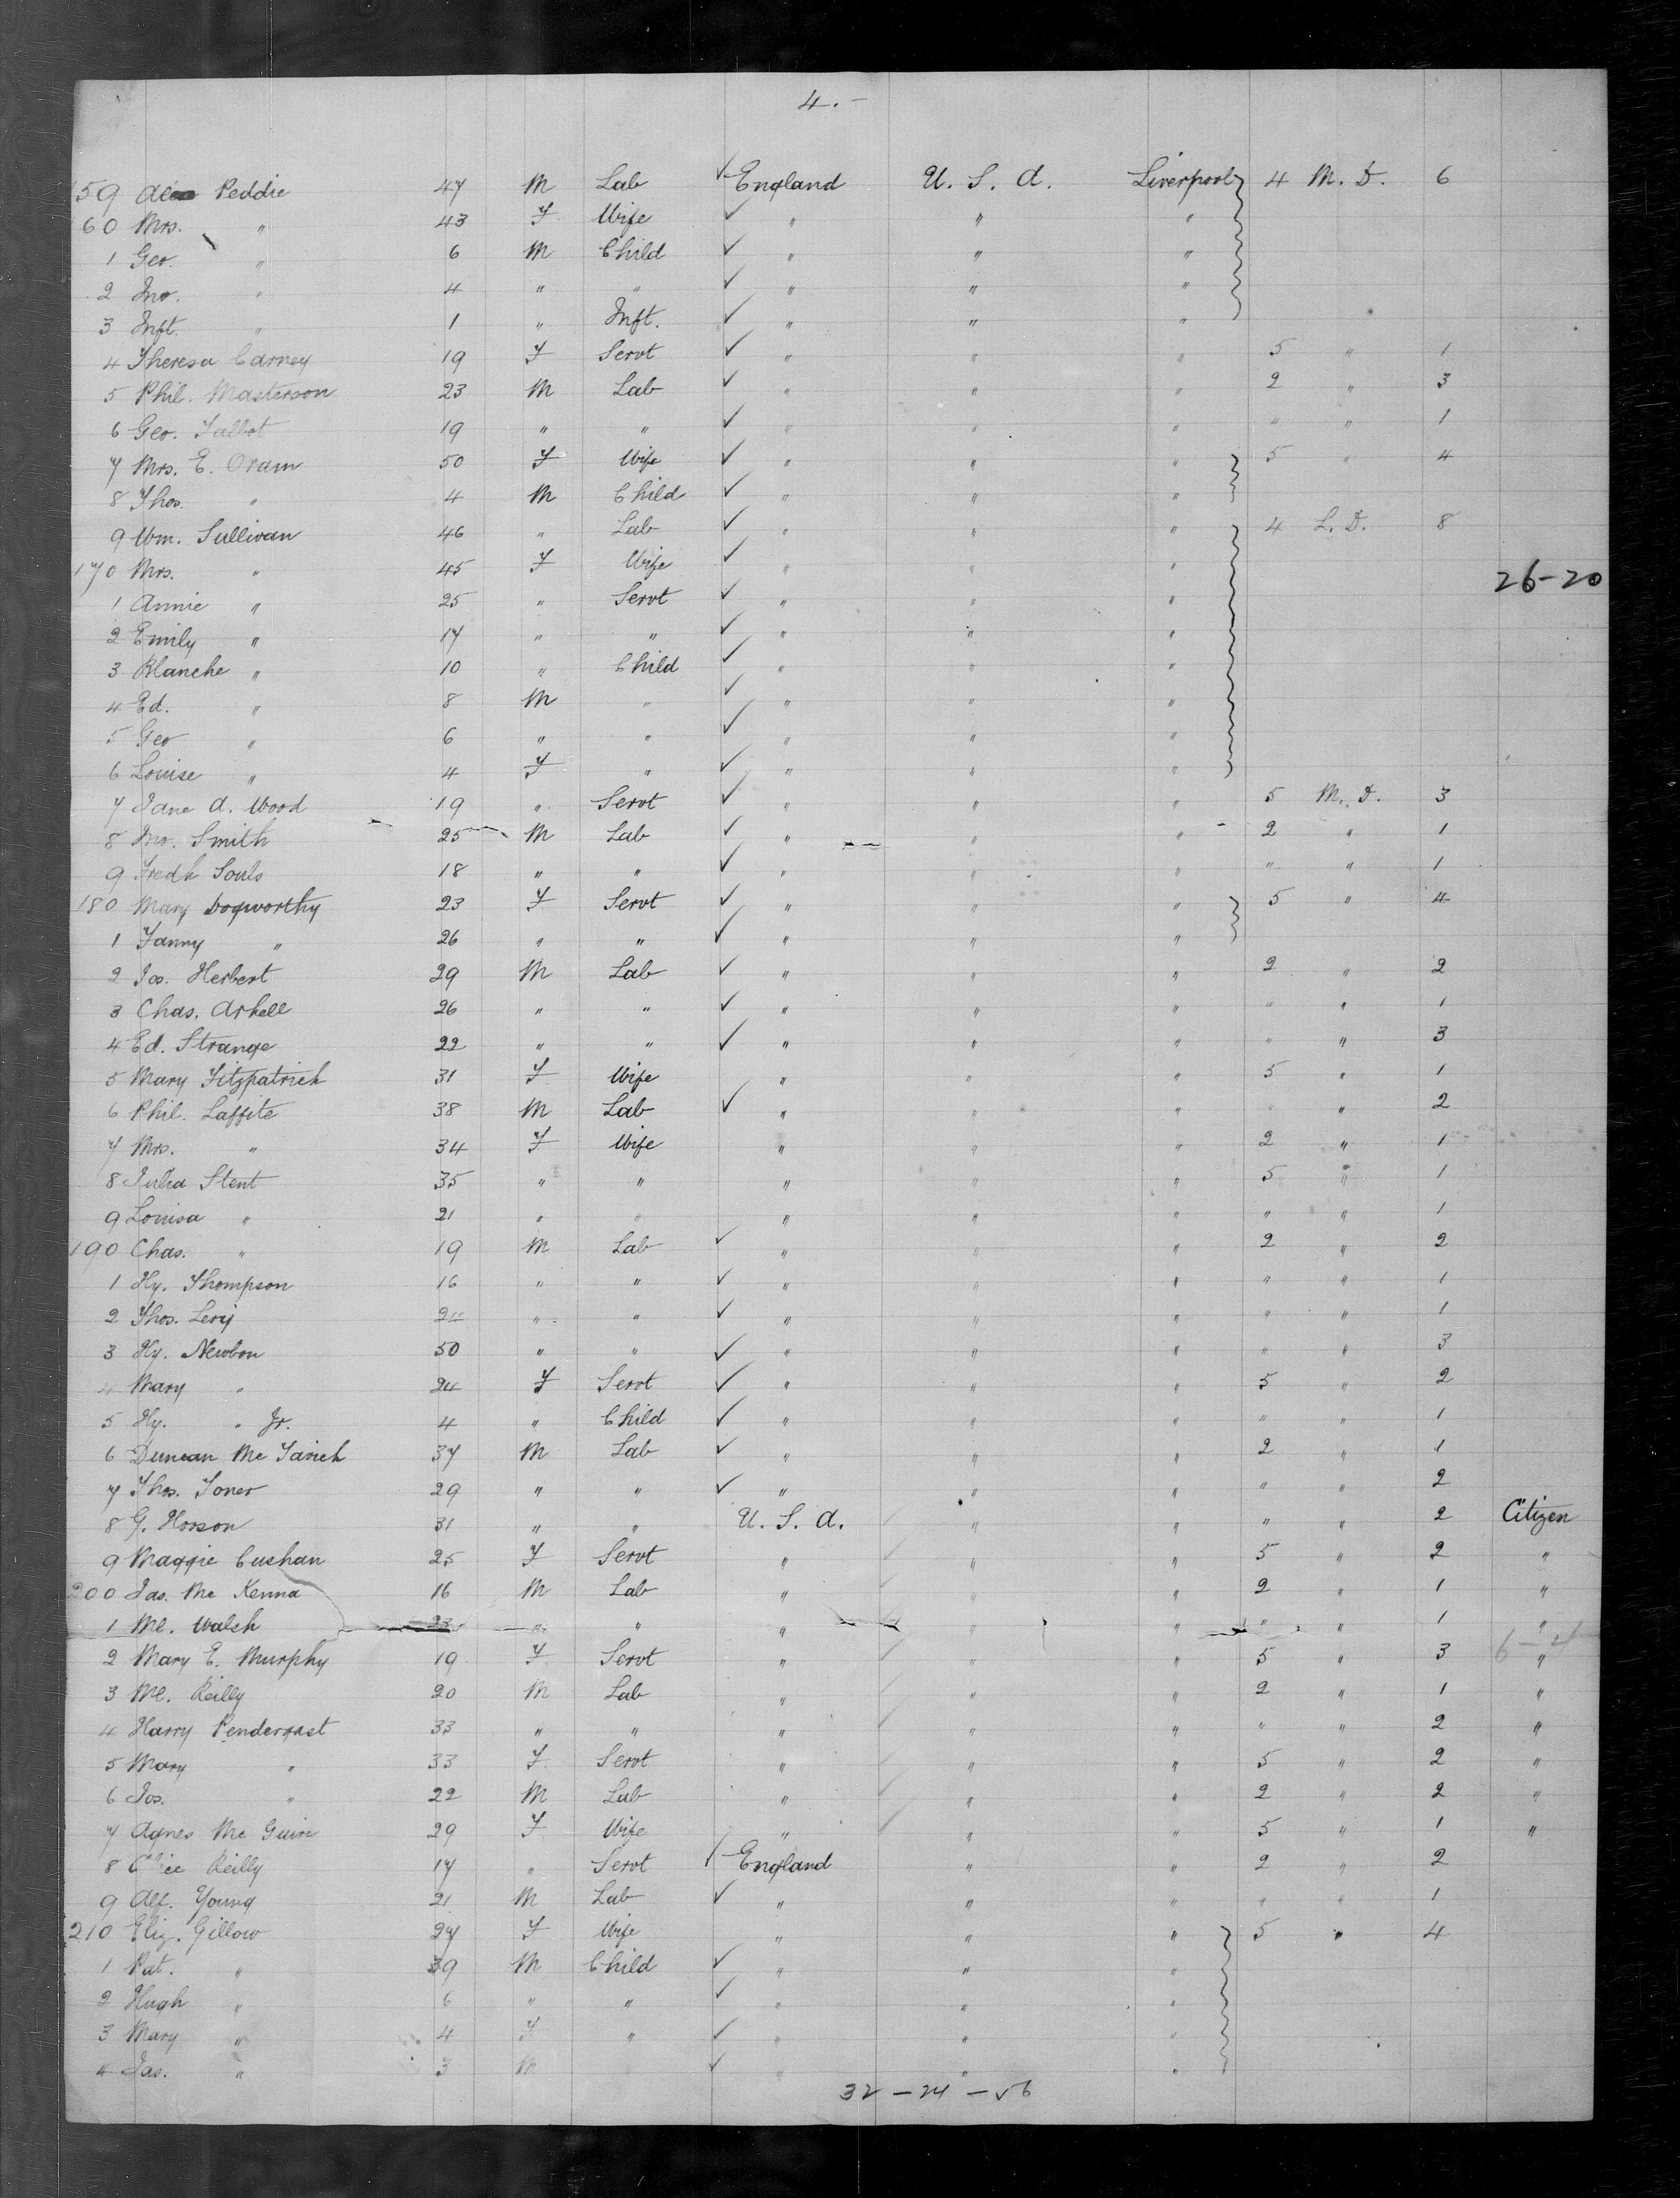 4.-
159 Peddie 47 M Lab ✓ England U. S. A. Liverpool 4 M. D. 6
60 Mrs. " 43 F Wife ✓ " " "
1 Geo. " 6 M Child ✓ " " "
2 Jno. " 4 " " ✓ " " "
3 Inft. " 1 " Inft. ✓ " " "
4 Theresa Carney 19 F Servt ✓ " " " 5 " 1
5 Phil. Masterson 23 M Lab ✓ " " " 2 " 3
6 Geo. Talbot 19 " " ✓ " " " " " 1
7 Mrs. E. Oram 50 F Wife ✓ " " " 5 " 4
8 Thos. " 4 M Child ✓ " " "
9 Wm. Sullivan 46 " Lab ✓ " " " 4 L. D. 8
170 Mrs. " 45 F Wife ✓ " " " 26-20
1 Annie " 25 " Servt ✓ " " "
2 Emily " 17 " " ✓ " " "
3 Blanche " 10 " Child ✓ " " "
4 Ed. " 8 M " ✓ " " "
5 Geo " 6 " " ✓ " " "
6 Louise " 4 F " ✓ " " "
7 Jane A. Wood 19 " Servt ✓ " " " 5 M. D. 3
8 Jno. Smith 25 M Lab ✓ " " " 2 " 1
9 Fredk Souls 18 " " ✓ " " " " " 1
180 Mary Dogworthy 23 F Servt ✓ " " " 5 " 4
1 Fanny " 26 " " ✓ " " "
2 Jos. Herbert 29 M Lab ✓ " " " 2 " 2
3 Chas. Arkell 26 " " ✓ " " " " " 1
4 Ed. Strange 22 " " ✓ " " " " " 3
5 Mary Fitzpatrick 31 F Wife " " " 5 " 1
6 Phil. Laffite 38 M Lab ✓ " " " " " 2
7 Mrs. " 34 F Wife " " " 2 " 1
8 Julia Stent 35 " " " " " 5 " 1
9 Louisa " 21 " " " " " " " 1
190 Chas. " 19 M Lab ✓ " " " 2 " 2
1 Hy. Thompson 16 " " ✓ " " " " " 1
2 Thos. Levy " " ✓ " " " " " 1
3 Hy. Newbon 50 " " ✓ " " " " " 3
4 Mary " 24 F Servt ✓ " " " 5 " 2
5 Hy. " Jr. 4 " Child ✓ " " " " " 1
6 Duncan Mc Tavish 37 M Lab ✓ " " " 2 " 1
7 Thos. Toner 29 " " ✓ " " " " " 2
8 G. Hosson 31 " " U. S. A. " " " " 2 Citizen
9 Maggie Cushan 25 F Servt " " " 5 " 2 "
200 Jas. Mc Kenna 16 M Lab " " " 2 " 1 "
1 Ml. Walsh 23 " " " " " " " 1 "
2 Mary E. Murphy 19 F Servt " " " 5 " 3 6-4 "
3 Ml. Reilly 20 M Lab " " " 2 " 1 "
4 Harry Pendergast 33 " " " " " " " 2 "
5 Mary " 33 F Servt " " " 5 " 2 "
6 Jos. " 22 M Lab " " " 2 " 2 "
7 Agnes Mc Guire 29 F Wife " " " 5 " 1 "
8 Reilly 17 " Servt England " " 2 " 2
9 Alf. Young 21 M Lab ✓ " " " " " 1
210 Eliz. Gillow 27 F Wife " " " 5 " 4
1 Pat. " M Child ✓ " " "
2 Hugh " 6 " " ✓ " " "
3 Mary " 4 F " ✓ " " "
4 Jas. " 3 M ✓ " " "
32-24-56